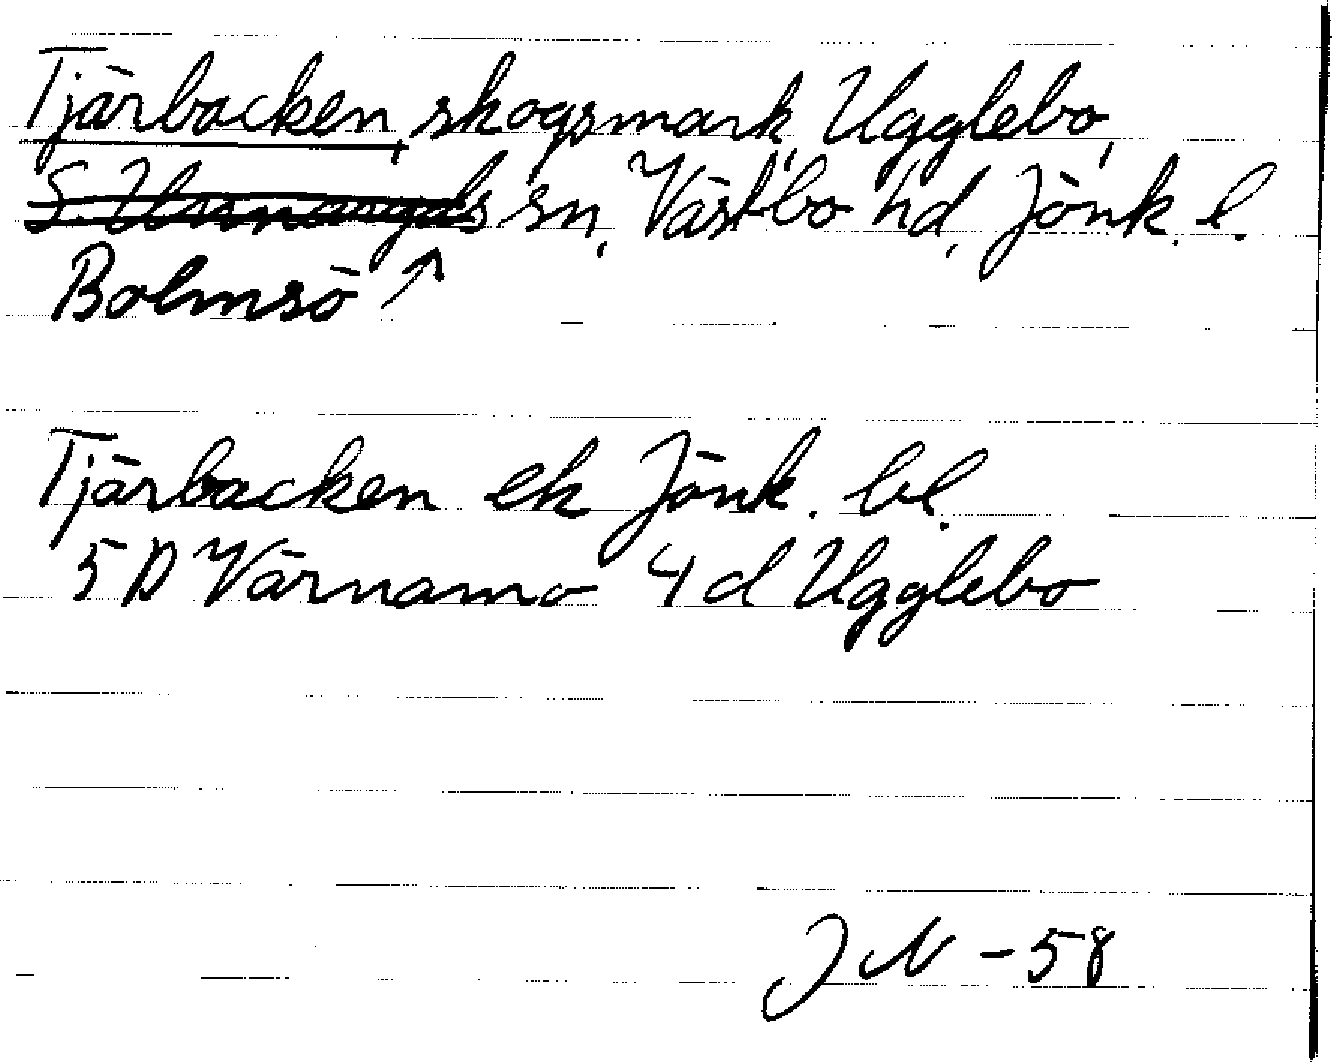 Tjärbacken, skogsmark, Ugglebo,
S. Unnaryds sn, Västbo hd, Jönk. l.
Bolmsö ↗
Tjärbacken ek Jönk. bl.
5 D Värnamo 4 d Ugglebo
J N - 58